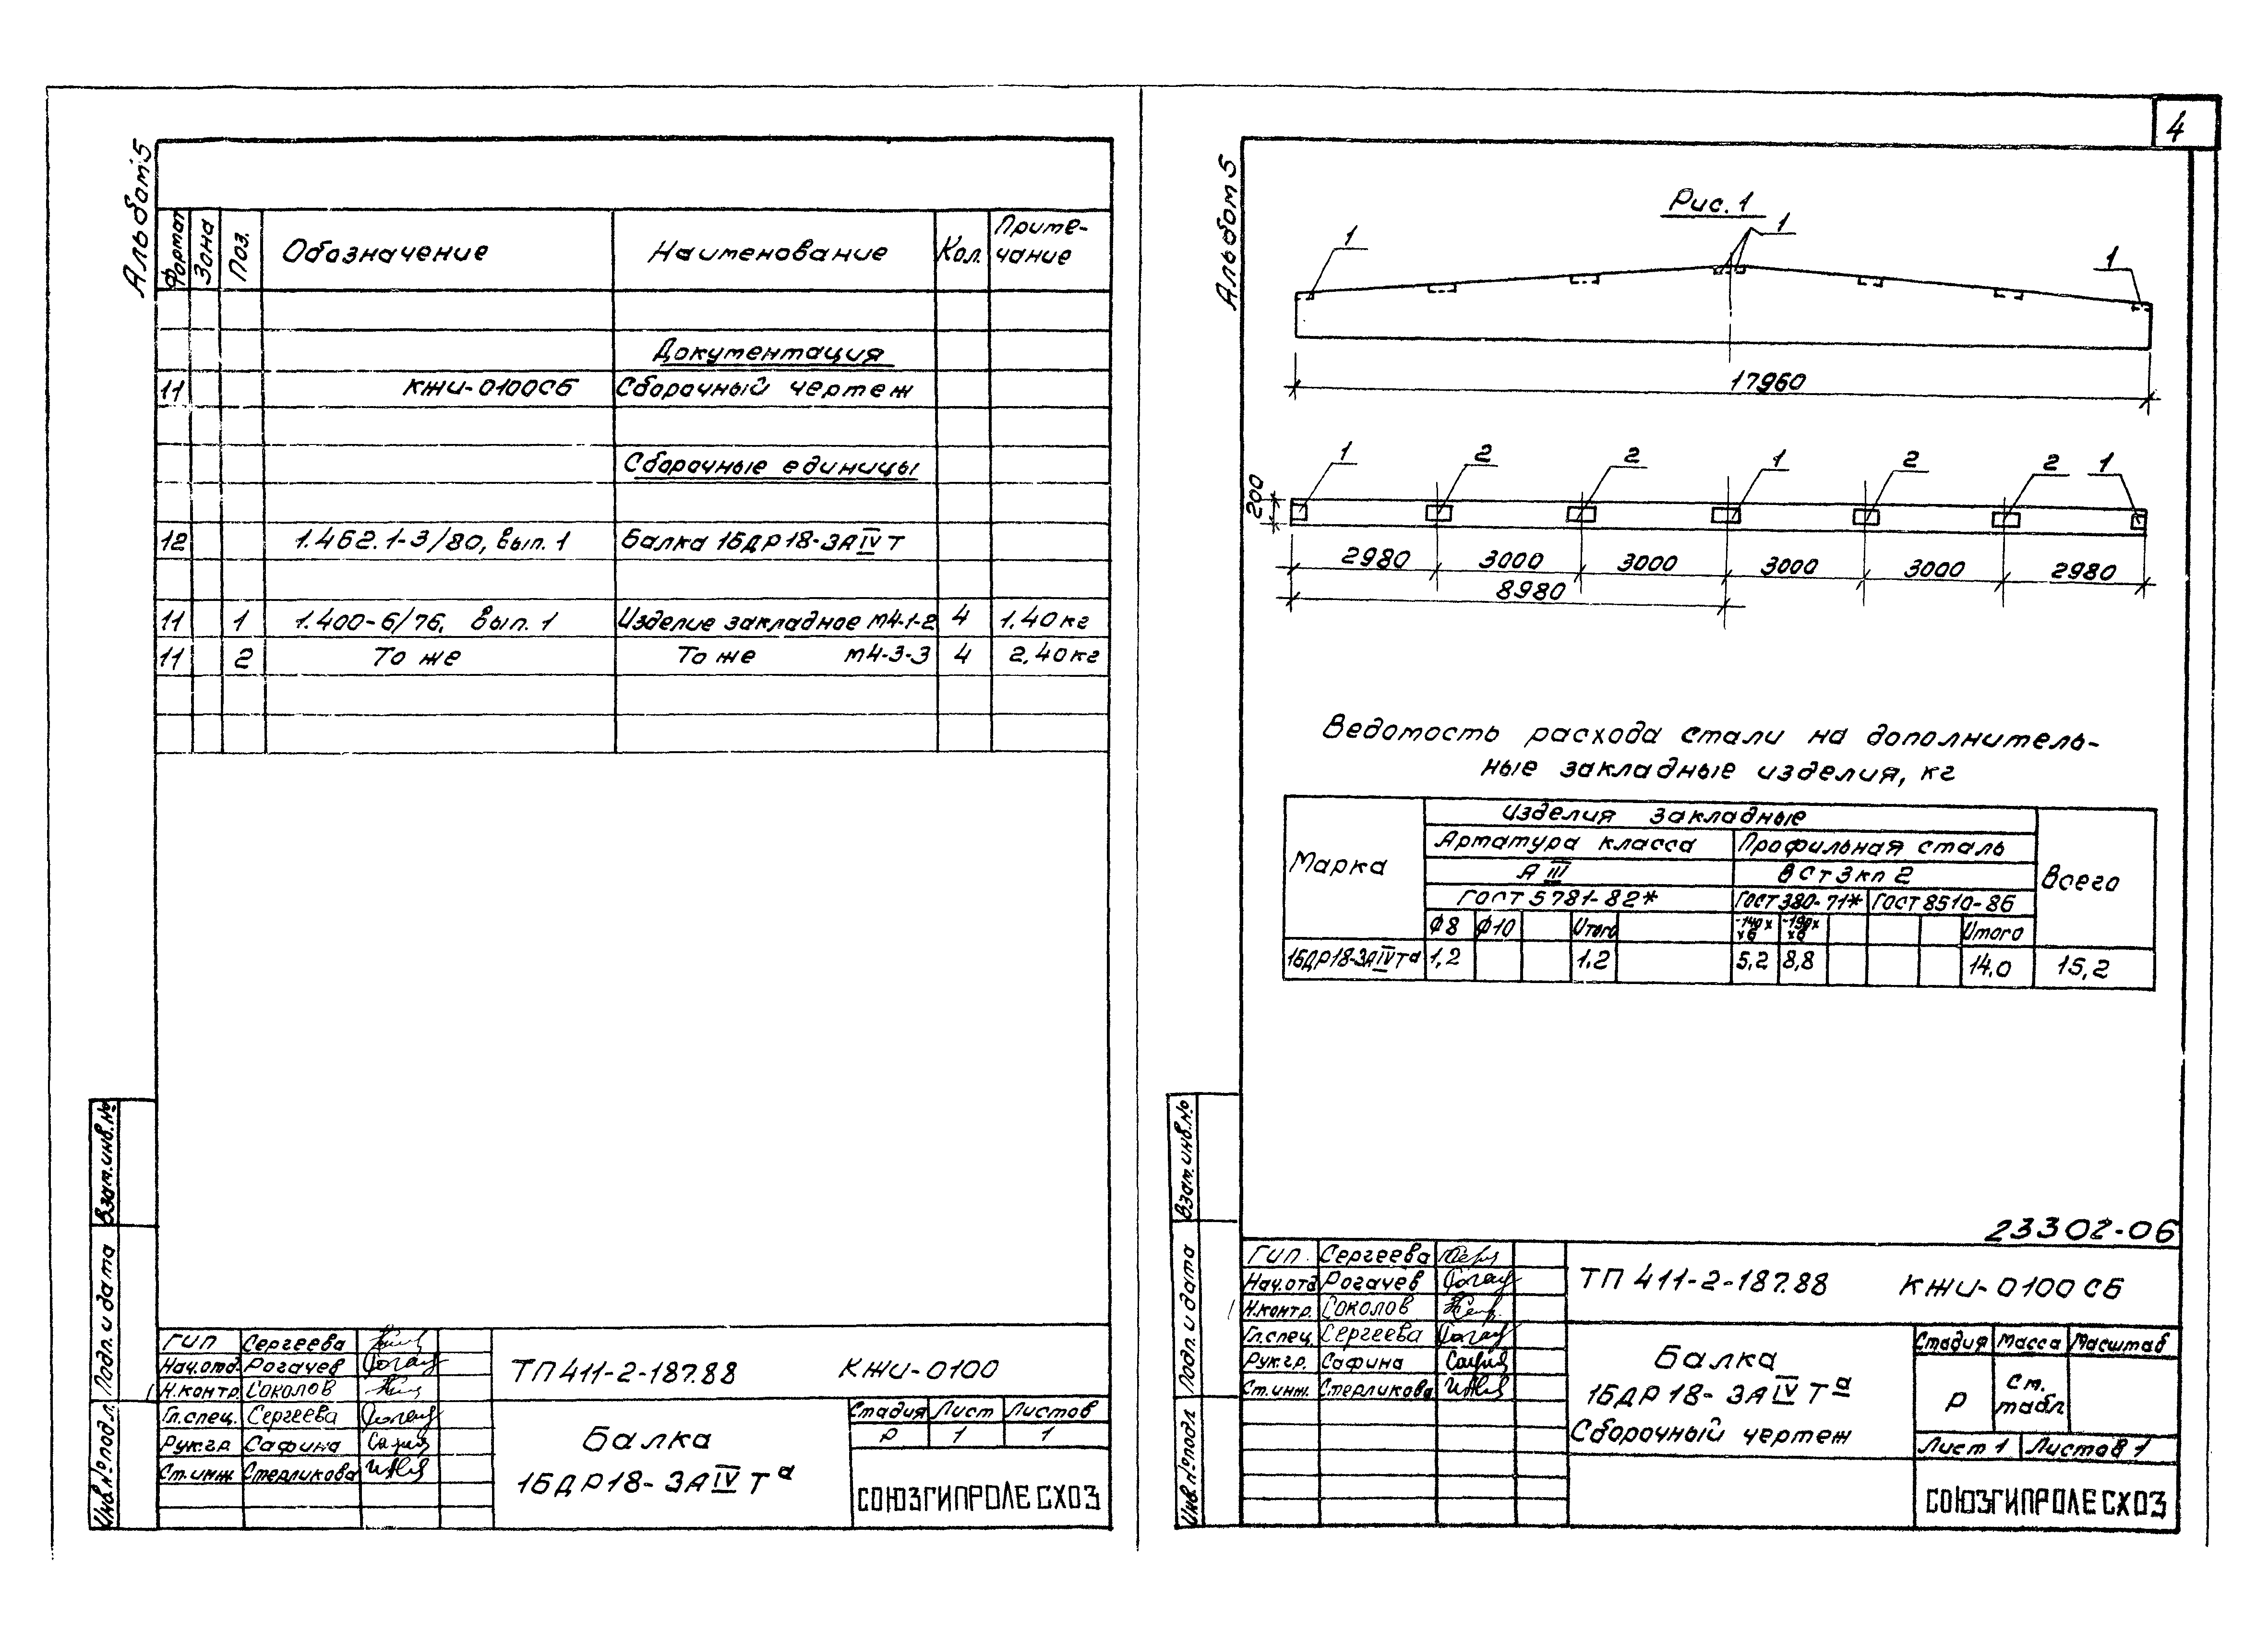 4
Альбом 5
Формат Зона Поз. Обозначение Наименование Кол. Приме-
чание
Документация
11 КЖИ-0100СБ Сборочный чертеж
Сборочные единицы
12 1.462.1-3/80, вып. 1 Балка 1БДР18-3АIVТ
11 1 1.400-6/76, вып. 1 Изделие закладное М4-1-2 4 1.40кг
11 2 То же То же М4-3-3 4 2,40кг
Взам.инв.№
Подп. и дата
Инв.№подл.
ГИП Сергеева
Нач.отд. Рогачев
Н.контр. Соколов
Гл.спец. Сергеева
Рук.гр. Сафина
Ст.инж. Стерликова
ТП 411-2-187.88 КЖИ-0100
Балка
1БДР18-3АIVТа
Стадия Лист Листов
Р 1 1
СОЮЗГИПРОЛЕСХОЗ
Альбом 5
Рис. 1
1 1 1
17960
1 2 2 1 2 2 1
200
2980 3000 3000 3000 3000 2980
8980
Ведомость расхода стали на дополнитель-
ные закладные изделия, кг
Марка Изделия закладные Всего
Арматура класса Профильная сталь
АIII ВСт3кп2
ГОСТ 5781-82* ГОСТ380-71* ГОСТ8510-86
ф8 ф10 Итого -140х
х6 -190х
х6 Итого
1БДР18-3АIVТа 1,2 1,2 5,2 8,8 14,0 15,2
23302-06
Взам.инв.№
Подп. и дата
Инв.№подл
ГИП. Сергеева
Нач.отд Рогачев
Н.контр. Соколов
Гл.спец. Сергеева
Рук.гр. Сафина
Ст.инж. Стерликова
ТП 411-2-187.88 КЖИ-0100 СБ
Балка
1БДР18-3АIVТа
Сборочный чертеж
Стадия Масса Масштаб
Р См.
табл
Лист 1 Листов 1
СОЮЗГИПРОЛЕСХОЗ